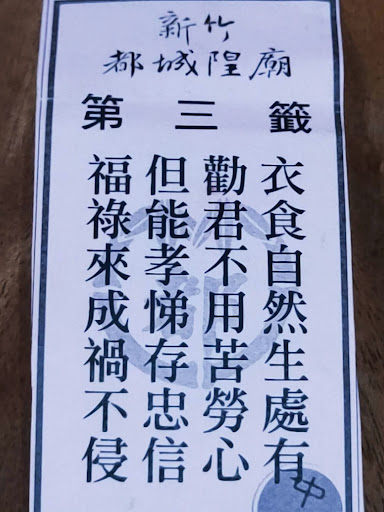 新竹
都城隍廟
第三籤
衣食自然生處有
勸君不用苦勞心
但能孝悌存忠信
福祿來成禍不侵
中